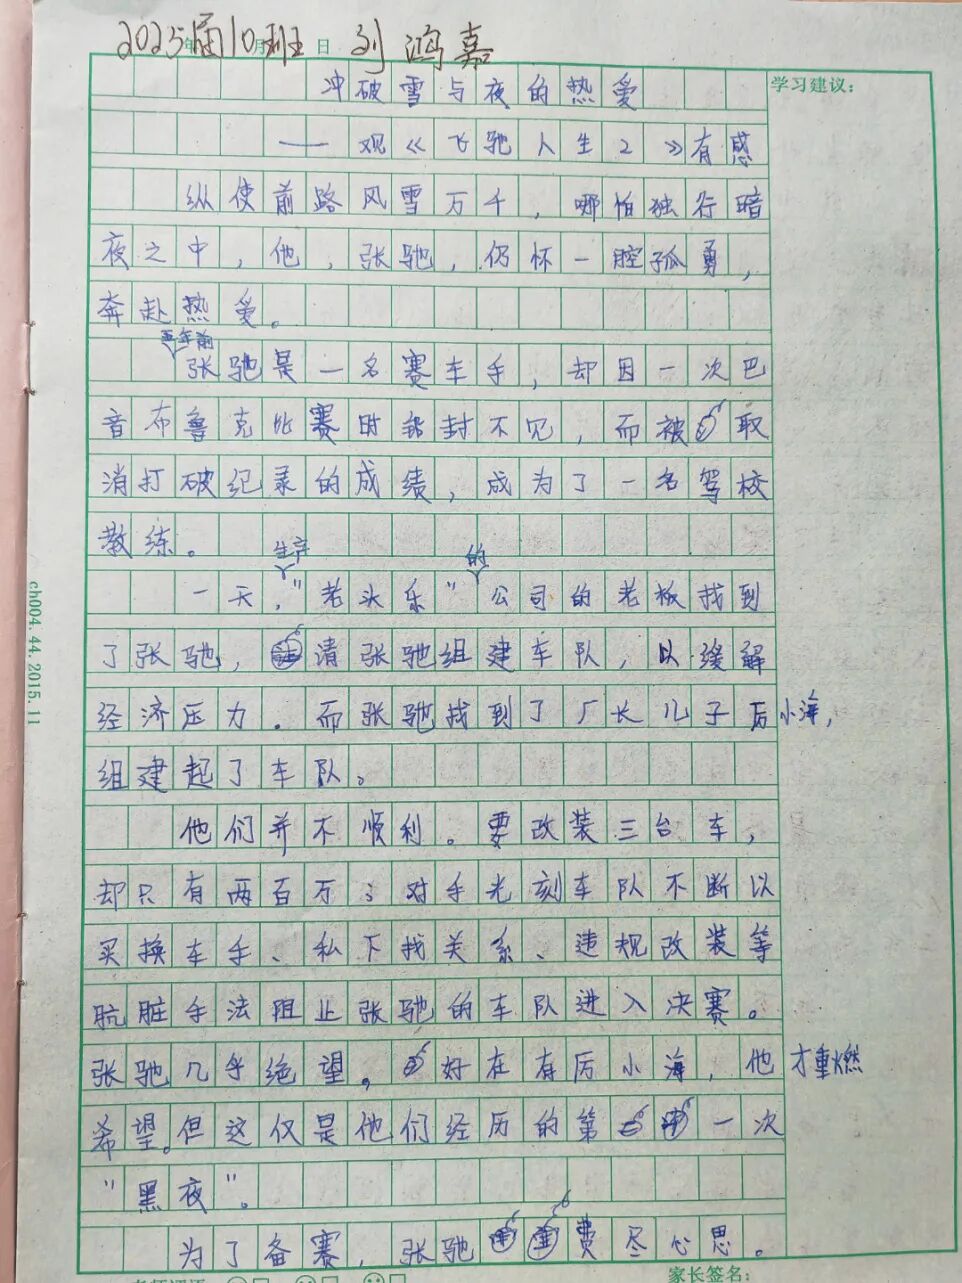 2025届10班 刘鸿嘉
年 月 日
冲破雪与夜的热爱
学习建议：
——观《飞驰人生2》有感
纵使前路风雪万千，哪怕独行暗
夜之中，他，张驰，仍怀一腔孤勇，
奔赴热爱。
五年前
张驰是一名赛车手，却因一次巴
音布鲁克比赛时铅封不见，而被取
消打破纪录的成绩，成为了一名驾校
教练。
生产 的
一天，"老头乐"公司的老板找到
了张驰，请张驰组建车队，以缓解
经济压力。而张驰找到了厂长儿子厉小海，
组建起了车队。
他们并不顺利。要改装三台车，
却只有两百万；对手光刻车队不断以
买换车手、私下找关系、违规改装等
肮脏手法阻止张驰的车队进入决赛。
张驰几乎绝望。好在有厉小海，他才重燃
希望。但这仅是他们经历的第一次
"黑夜"。
为了备赛，张驰费尽心思。
ch004.44.2015.11
家长签名：